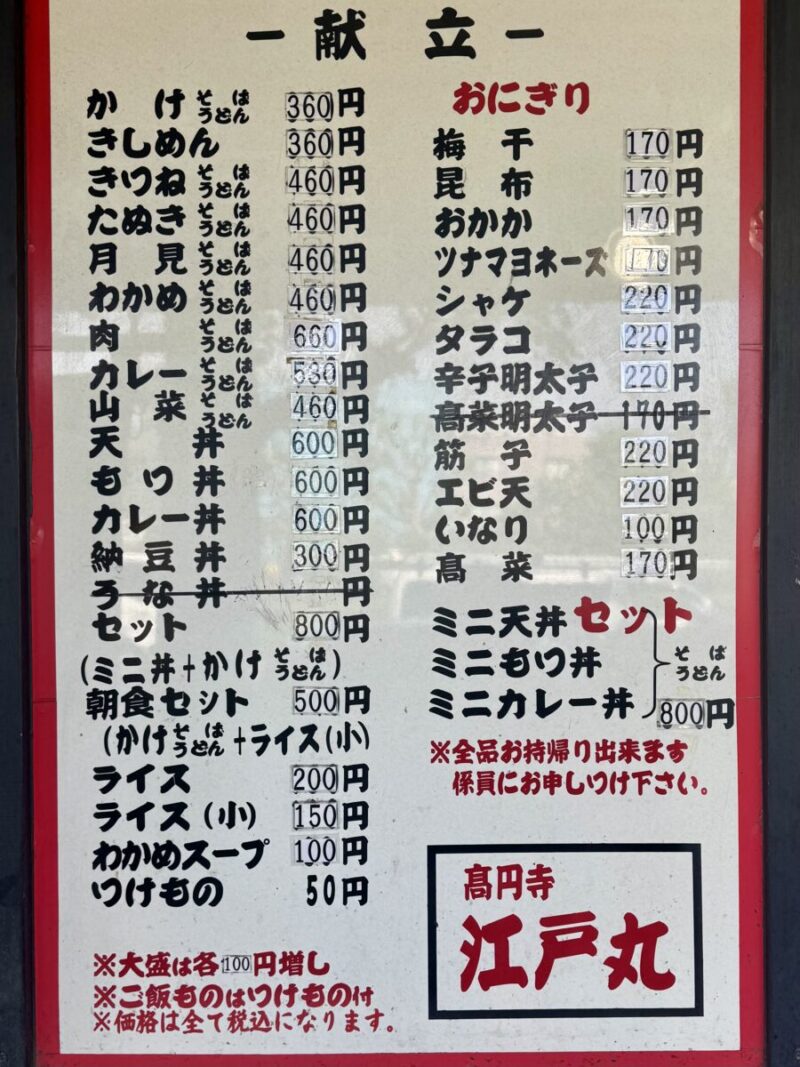 －献立－
かけ そば うどん 360円
きしめん 360円
きつね そば うどん 460円
たぬき そば うどん 460円
月見 そば うどん 460円
わかめ そば うどん 460円
肉 そば うどん 660円
カレー そば うどん 530円
山菜 そば うどん 460円
天丼 600円
もつ丼 600円
カレー丼 600円
納豆丼 300円
うな丼 円
セット 800円
(ミニ丼+かけ そば うどん)
朝食セット 500円
(かけ そば うどん+ライス(小)
ライス 200円
ライス(小) 150円
わかめスープ 100円
つけもの 50円
※大盛は各100円増し
※ご飯ものはつけもの付
※価格は全て税込になります。
おにぎり
梅干 170円
昆布 170円
おかか 170円
ツナマヨネーズ 170円
シャケ 220円
タラコ 220円
辛子明太子 220円
高菜明太子 170円
筋子 220円
エビ天 220円
いなり 100円
高菜 170円
ミニ天丼セット
ミニもつ丼 そば うどん
ミニカレー丼 800円
※全品お持帰り出来ます
係員にお申しつけ下さい。
高円寺
江戸丸